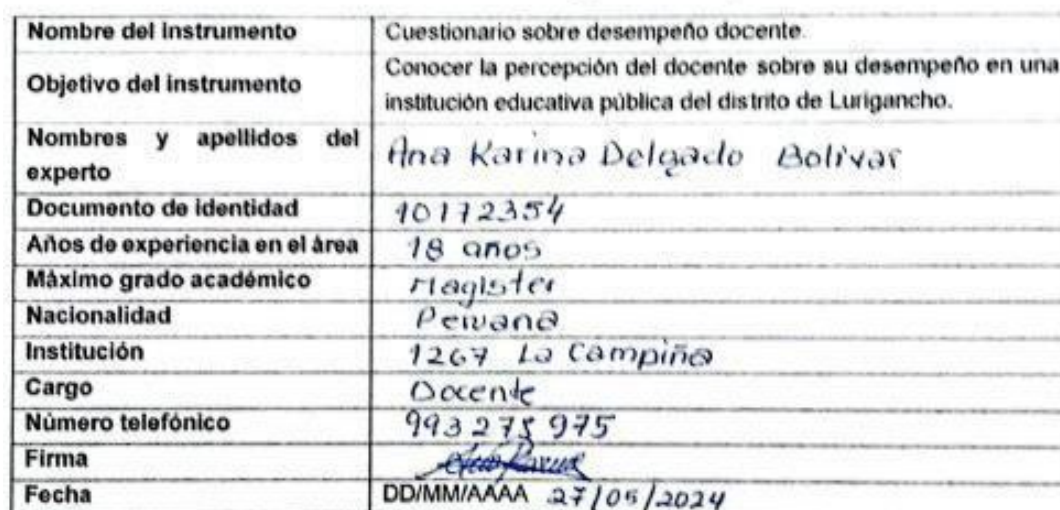 Nombre del instrumento Cuestionario sobre desempeño docente.
Objetivo del instrumento Conocer la percepción del docente sobre su desempeño en una
institución educativa pública del distrito de Lurigancho.
Nombres y apellidos del
experto Ana Karina Delgado Bolivar
Documento de identidad 10172354
Años de experiencia en el área 18 años
Máximo grado académico Magister
Nacionalidad Peruana
Institución 1267 La Campiña
Cargo Docente
Número telefónico 993275975
Firma
Fecha DD/MM/AAAA 27/05/2024